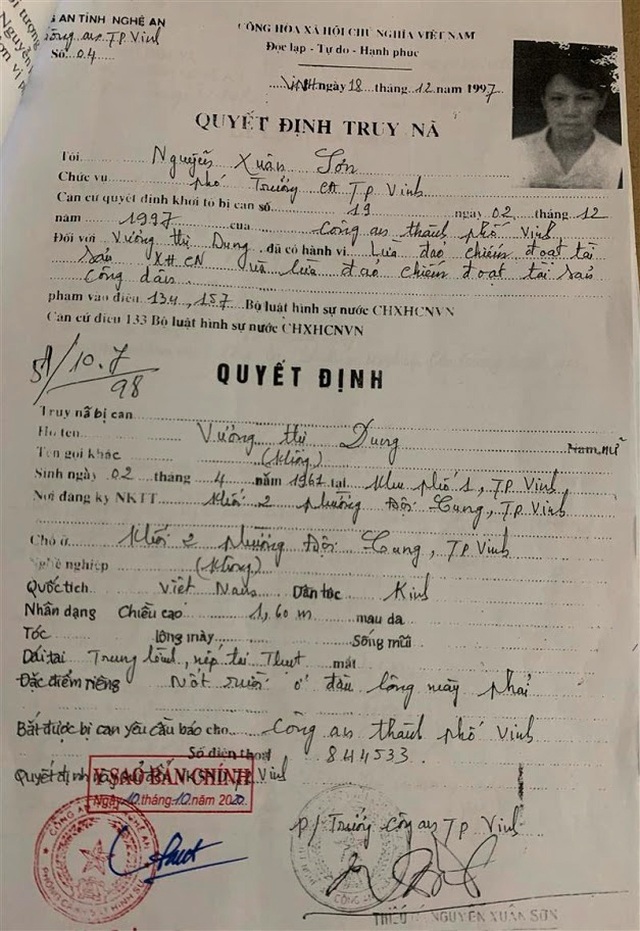 G AN TỈNH NGHỆ AN
Công an T.P Vinh
Số 04
CỘNG HÒA XÃ HỘI CHỦ NGHĨA VIỆT NAM
Độc lập - Tự do - Hạnh phúc
Vinh ngày 18 tháng 12 năm 1997
QUYẾT ĐỊNH TRUY NÃ
Tôi Nguyễn Xuân Sơn
Chức vụ phó Trưởng CA T.P Vinh
Căn cứ quyết định khởi tố bị can số 19 ngày 02 tháng 12
năm 1997 của Công an thành phố Vinh
Đối với Vương thị Dung đã có hành vi Lừa đảo chiếm đoạt tài
sản XHCN và lừa đảo chiếm đoạt tài sản
Công dân
phạm vào điều 134, 157 Bộ luật hình sự nước CHXHCNVN
Căn cứ điều 133 Bộ luật hình sự nước CHXHCNVN
10.7
98
QUYẾT ĐỊNH
Truy nã bị can
Họ tên Vương thị Dung Nam, nữ
Tên gọi khác (Không)
Sinh ngày 02 tháng 4 năm 1961 tại Khu phố 1, T.P Vinh
Nơi đăng ký NKTT Khối 2 phường Đội Cung, T.P Vinh
Chỗ ở Khối 2 phường Đội Cung, T.P Vinh
Nghề nghiệp (Không)
Quốc tịch Việt Nam Dân tộc Kinh
Nhân dạng Chiều cao 1,60 m màu da
Tóc lông mày Sống mũi
Dái tai Trung bình, nếp tai Thuỳ mắt
Đặc điểm riêng Nốt ruồi ở đầu lông mày phải
Bắt được bị can yêu cầu báo cho Công an thành phố Vinh
Số điện thoại 844533.
Quyết định này VKSND T.P Vinh
Y SAO BẢN CHÍNH
Ngày 10 tháng 10 năm 2020
P/ Trưởng Công an T.P Vinh
NGUYỄN XUÂN SƠN